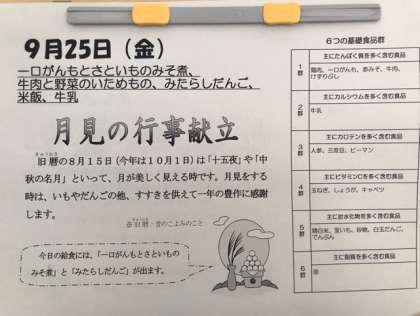 9月25日（金）
一口がんもとさといものみそ煮、
牛肉と野菜のいためもの、みたらしだんご、
米飯、牛乳
月見の行事献立
きゅうれき
旧暦の8月15日（今年は10月1日）は「十五夜」や「中
秋の名月」といって、月が美しく見える時です。月見をする
時は、いもやだんごの他、すすきを供えて一年の豊作に感謝
します。
旧暦：昔のこよみのこと
今日の給食には、「一口がんもとさといもの
みそ煮」と「みたらしだんご」が出ます。
6つの基礎食品群
主にたんぱく質を多く含む食品
1群
鶏肉、一口がんも、赤みそ、牛肉、
けずりぶし
主にカルシウムを多く含む食品
2群
牛乳
主にカロテンを多く含む食品
3群
人参、三度豆、ピーマン
主にビタミンCを多く含む食品
4群
玉ねぎ、しょうが、キャベツ
主に炭水化物を多く含む食品
5群
精白米、里いも、砂糖、白玉だんご、
でんぷん
主に脂質を多く含む食品
6群
油